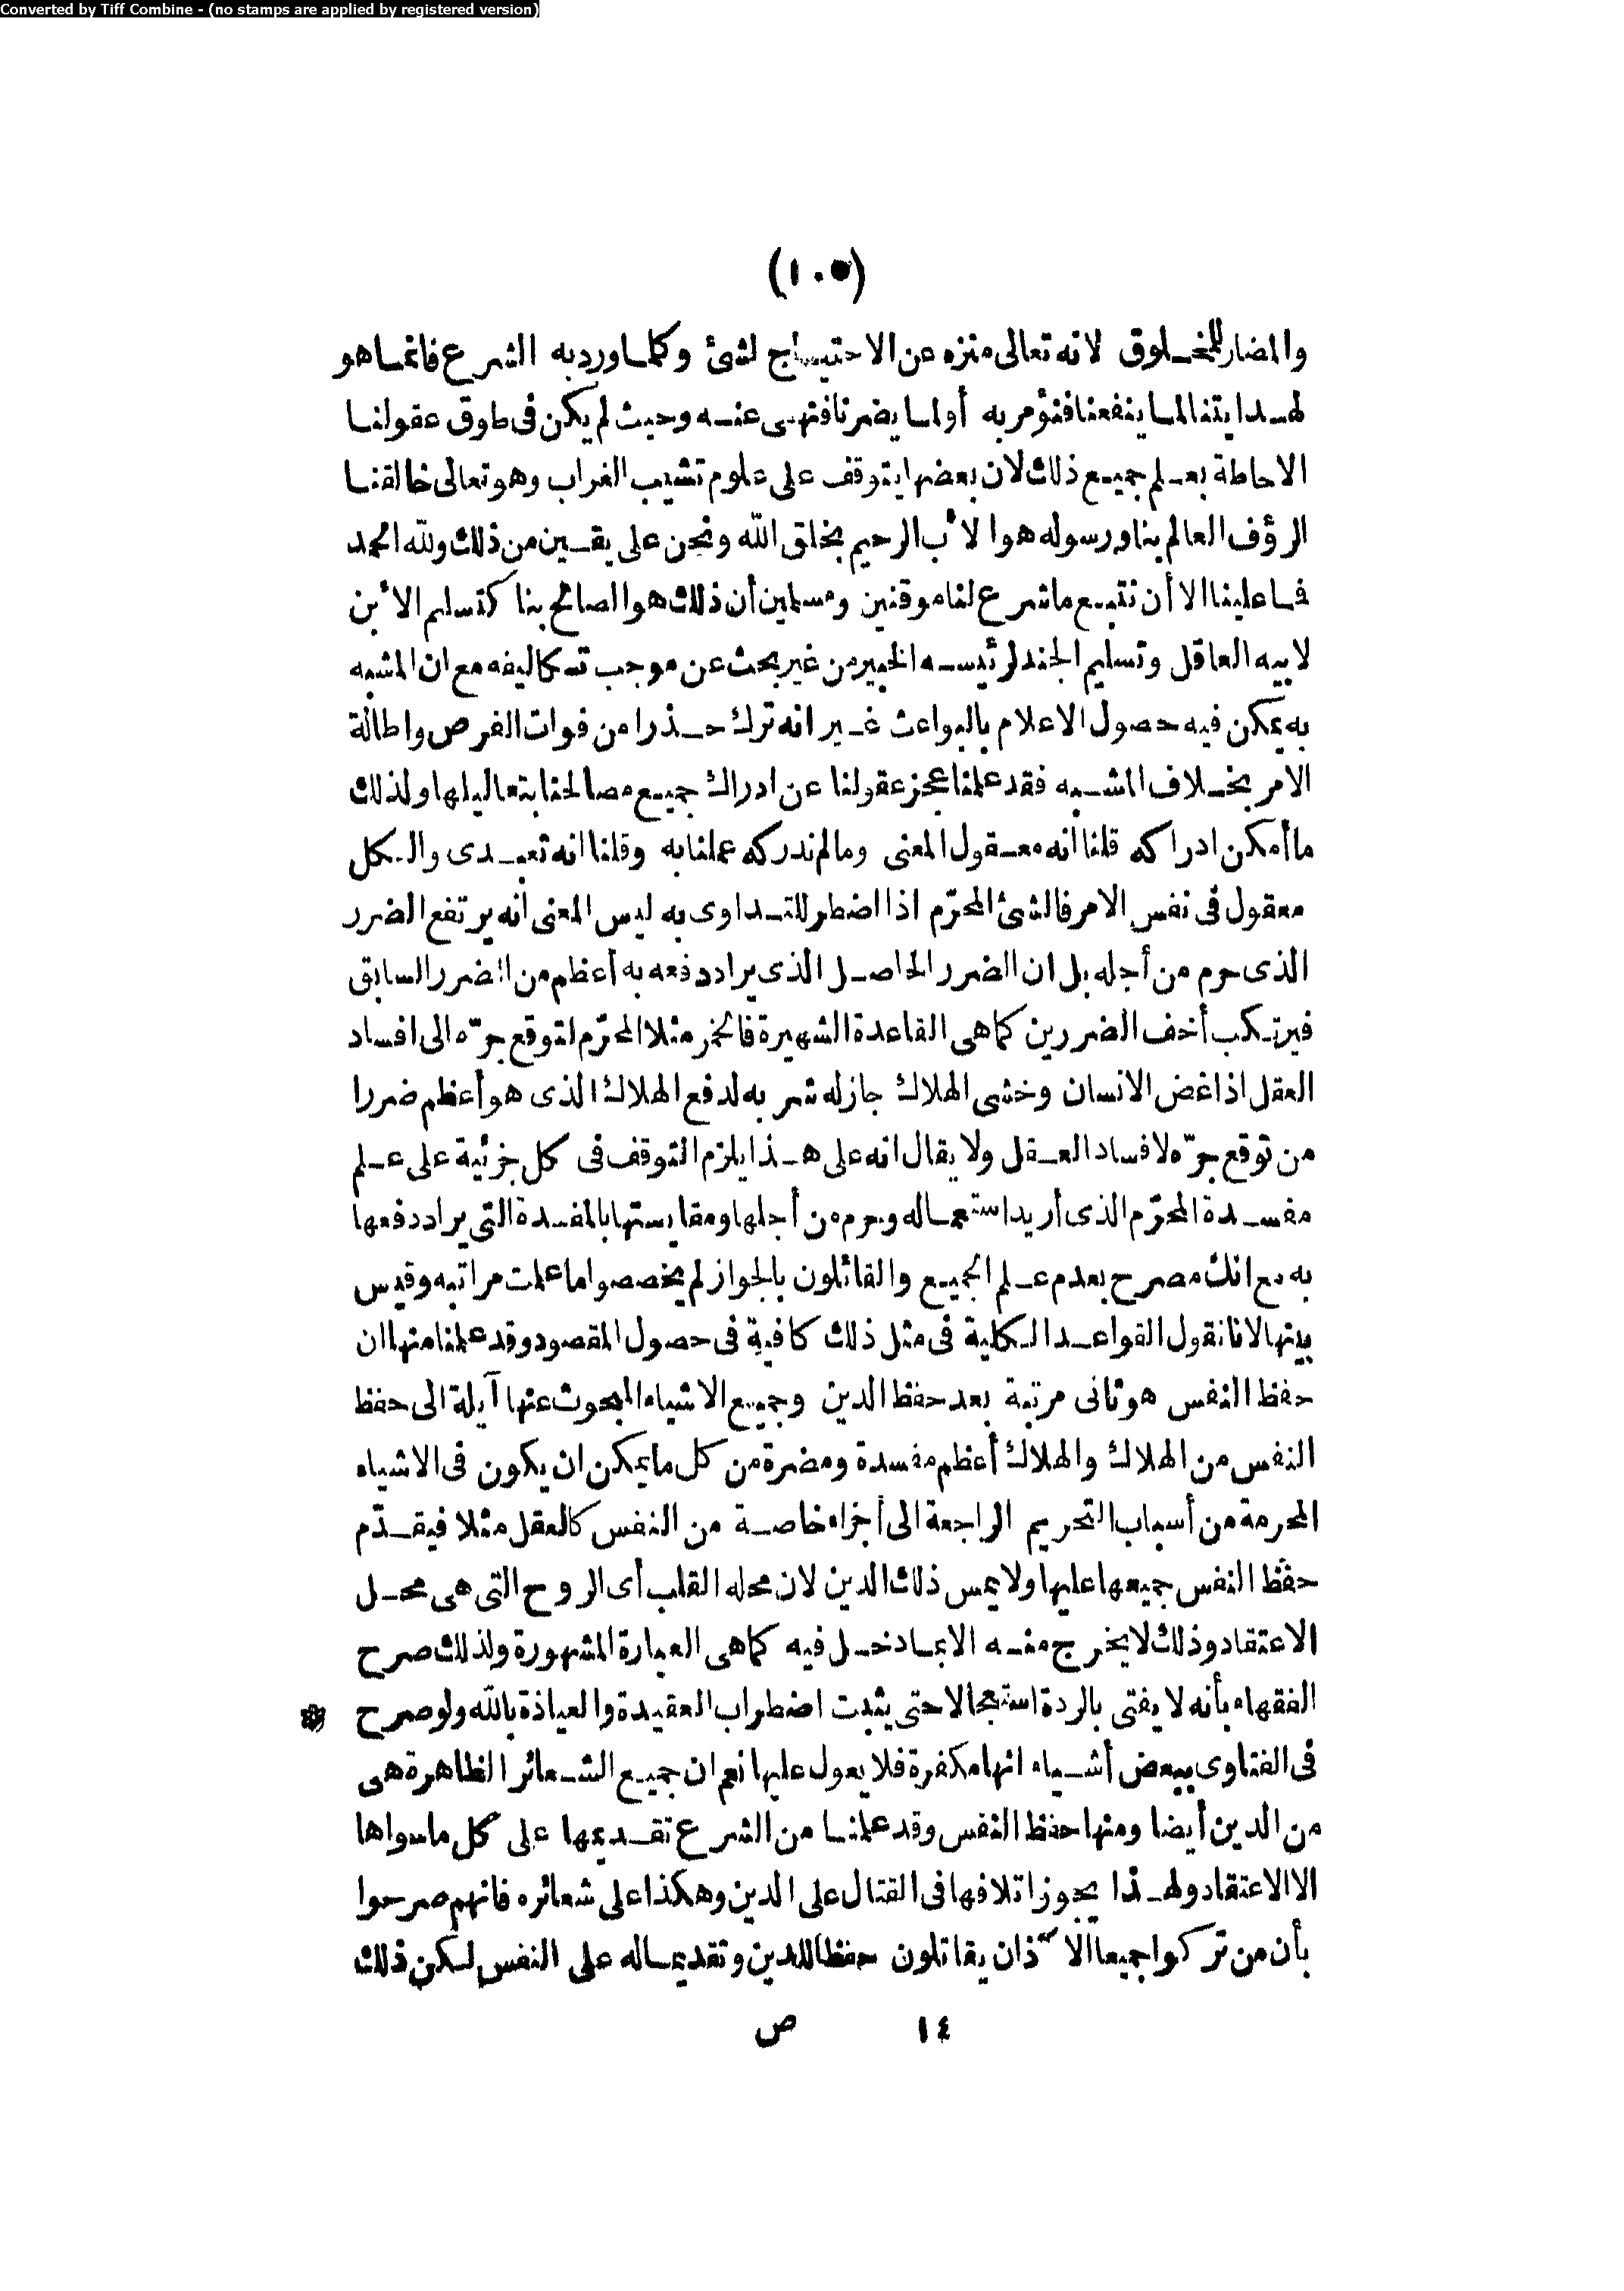 Converted by Tiff Combine - (no stamps are applied by registered version)
(١٠٥)
والمضار للمخلوق لانه تعالى منزه عن الاحتياج لشئ وكلما ورد به الشرع فانما هو
لهدايتنا لما ينفعنا فنؤمر به أولما يضرنا فننهى عنه وحيث لم يكن فى طوق عقولنا
الاحاطة بعلم جميع ذلك لان بعضها يتوقف على علوم تشيب الغراب وهو تعالى خالقنا
الرؤف العالم بنا ورسوله هو الأب الرحيم بخلق الله ونحن على يقين من ذلك ولله الحمد
فما علينا الا أن نتبع ما شرع لنا موقنين ومسلمين أن ذلك هو الصالح بنا كتسليم الأبن
لابيه العاقل وتسليم الجند لرئيسه الخبير من غير بحث عن موجب تكاليفه مع ان المشبه
به يمكن فيه حصول الاعلام بالبواعث غير انه ترك حذرا من فوات الفرص واطالة
الامر بخلاف المشبه فقد علمنا عجز عقولنا عن ادراك جميع مصالحنا بتعاليلها ولذلك
ما أمكن ادراكه قلنا انه معقول المعنى وما لم ندركه عملنا به وقلنا انه تعبدى والكل
معقول فى نفس الامر فالشئ المحرّم اذا اضطر للتداوى به ليس المعنى انه يرتفع الضرر
الذى حرم من أجله بل ان الضرر الحاصل الذى يراد دفعه به أعظم من الضرر السابق
فيرتكب أخف الضررين كما هى القاعدة الشهيرة فالخمر مثلا المحرّم لتوقع جرّه الى افساد
العقل اذا غص الانسان وخشى الهلاك جاز له شربه لدفع الهلاك الذى هو أعظم ضررا
من توقع جرّه لافساد العقل ولا يقال انه على هذا يلزم التوقف فى كل جزئية على علم
مفسدة المحرّم الذى أريد استعماله وحرم من أجلها ومقايستها بالمفسدة التى يراد دفعها
به مع انك مصرح بعدم علم الجميع والقائلون بالجواز لم يخصصوا ما علمت مراتبه وقيس
بينها لانا نقول القواعد الكلية فى مثل ذلك كافية فى حصول المقصود وقد علمنا منها ان
حفظ النفس هو ثانى مرتبة بعد حفظ الدين وجميع الاشياء المبحوث عنها آيلة الى حفظ
النفس من الهلاك والهلاك أعظم مفسدة ومضرة من كل ما يمكن ان يكون فى الاشياء
المحرمة من أسباب التحريم الراجعة الى أجزاء خاصة من النفس كالعقل مثلا فيقدّم
حفظ النفس جميعها عليها ولا يمس ذلك الدين لان محله القلب أى الروح التى هى محل
الاعتقاد وذلك لا يخرج منه الا بما دخل فيه كما هى العبارة المشهورة ولذلك صرح
الفقهاء بأنه لا يفتى بالردة استعجالا حتى يثبت اضطراب العقيدة والعياذة بالله ولو صرح *
فى الفتاوى ببعض أشياء انها مكفرة فلا يعول عليها نعم ان جميع الشعائر الظاهرة هى
من الدين أيضا ومنها حفظ النفس وقد علمنا من الشرع تقديمها على كل ما سواها
الا الاعتقاد ولهذا يجوز اتلافها فى القتال على الدين وهكذا على شعائره فانهم صرحوا
بأن من تركوا جميعا الآذان يقاتلون حفظا للدين وتقديما له على النفس لكن ذلك
١٤ ص